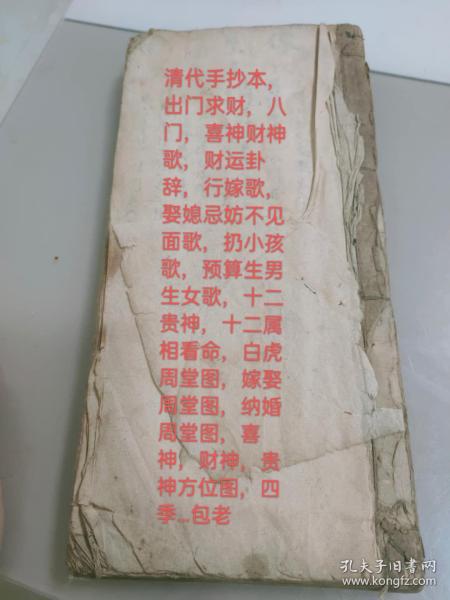 清代手抄本，
出门求财，八
门，喜神财神
歌，财运卦
辞，行嫁歌，
娶媳忌妨不见
面歌，扔小孩
歌，预算生男
生女歌，十二
贵神，十二属
相看命，白虎
周堂图，嫁娶
周堂图，纳婚
周堂图，喜
神，财神，贵
神方位图，四
季...包老
孔夫子旧书网
www.kongfz.com